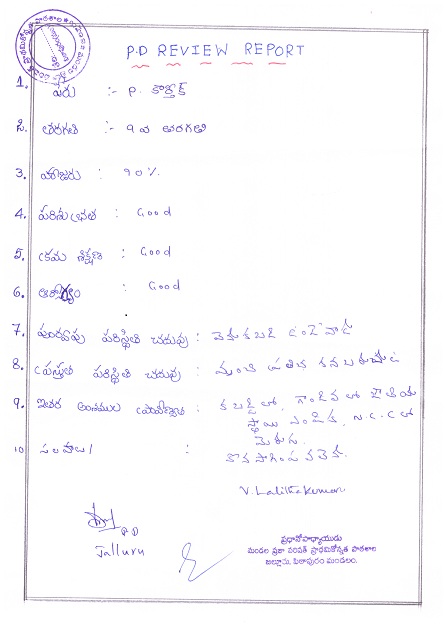 P.D REVIEW REPORT
1. పేరు :- P. కార్తీక్
2. తరగతి :- 9 వ తరగతి
3. హాజరు : 90%
4. పరిశుభ్రత : Good
5. క్రమ శిక్షణ : Good
6. ఆరోగ్యం : Good
7. పూర్వపు పరిస్థితి చదువు :
8. ప్రస్తుత పరిస్థితి చదువు : మంచి ప్రతిభ కనబరుచు
9. ఇతర అంశముల :
N.C.C లో
మెరుగు.
10 సలహాలు :
కొనసాగింపవచ్చు.
V. Lalitha Kumari
P D
Jalluru
ప్రధానోపాధ్యాయుడు
మండల ప్రజా పరిషత్ ప్రాథమికోన్నత పాఠశాల
జల్లూరు, పిఠాపురం మండలం.